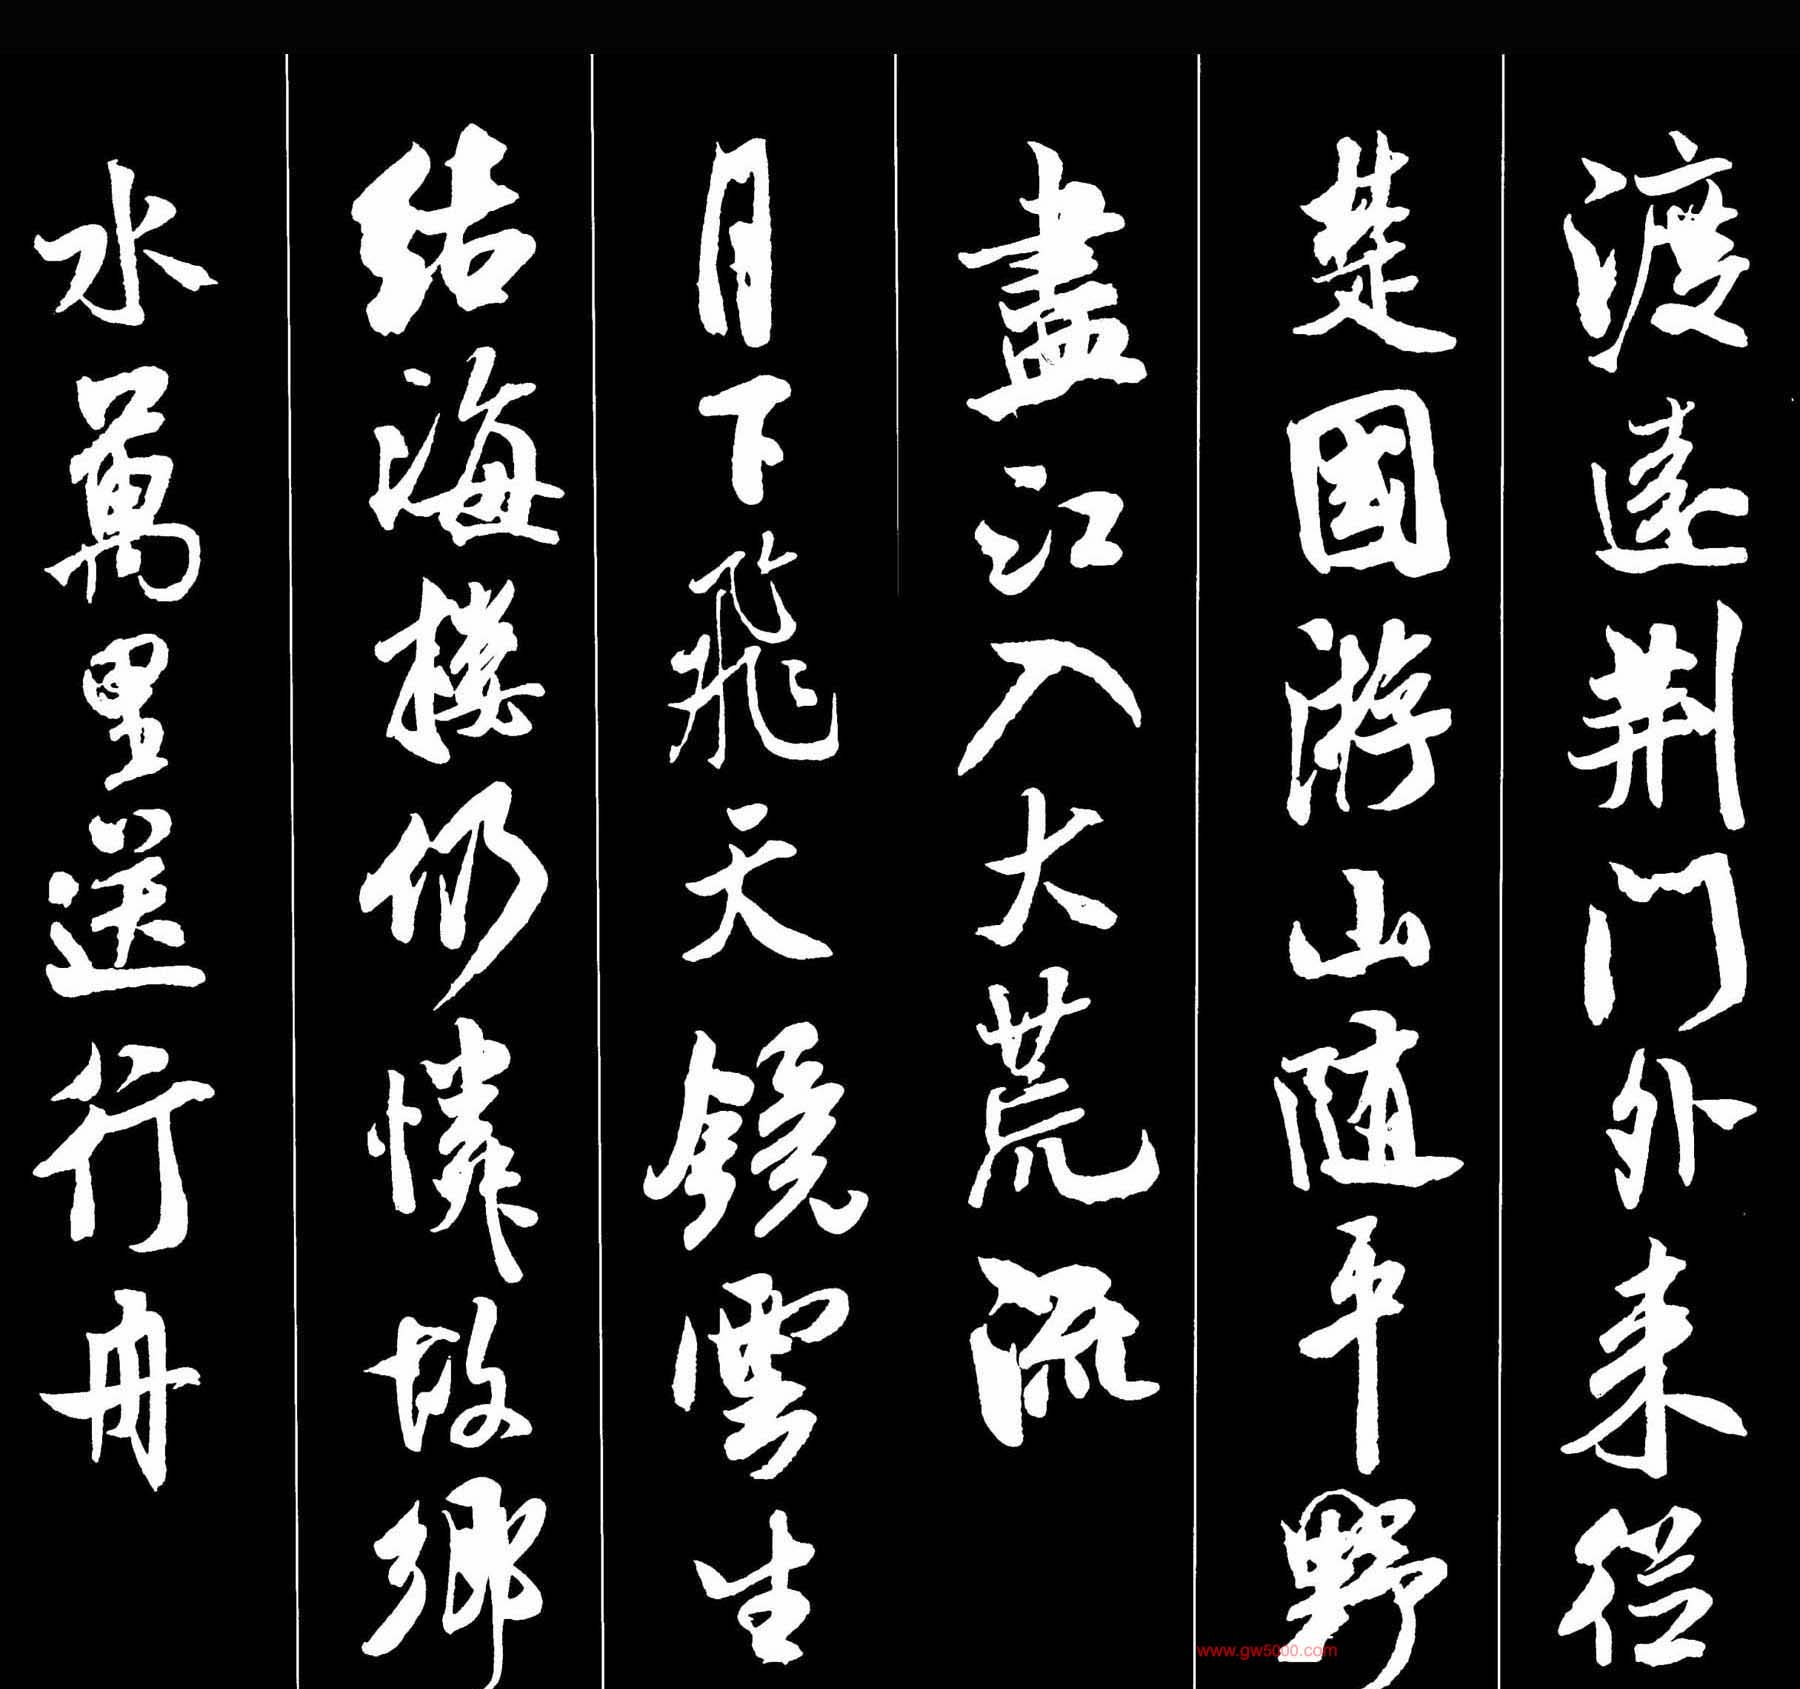 渡遠荆门外来從
楚國游山随平野
盡江入大荒流
月下飛天鏡雲生
结海楼仍憐故鄉
水萬里送行舟
www.gw5000.com